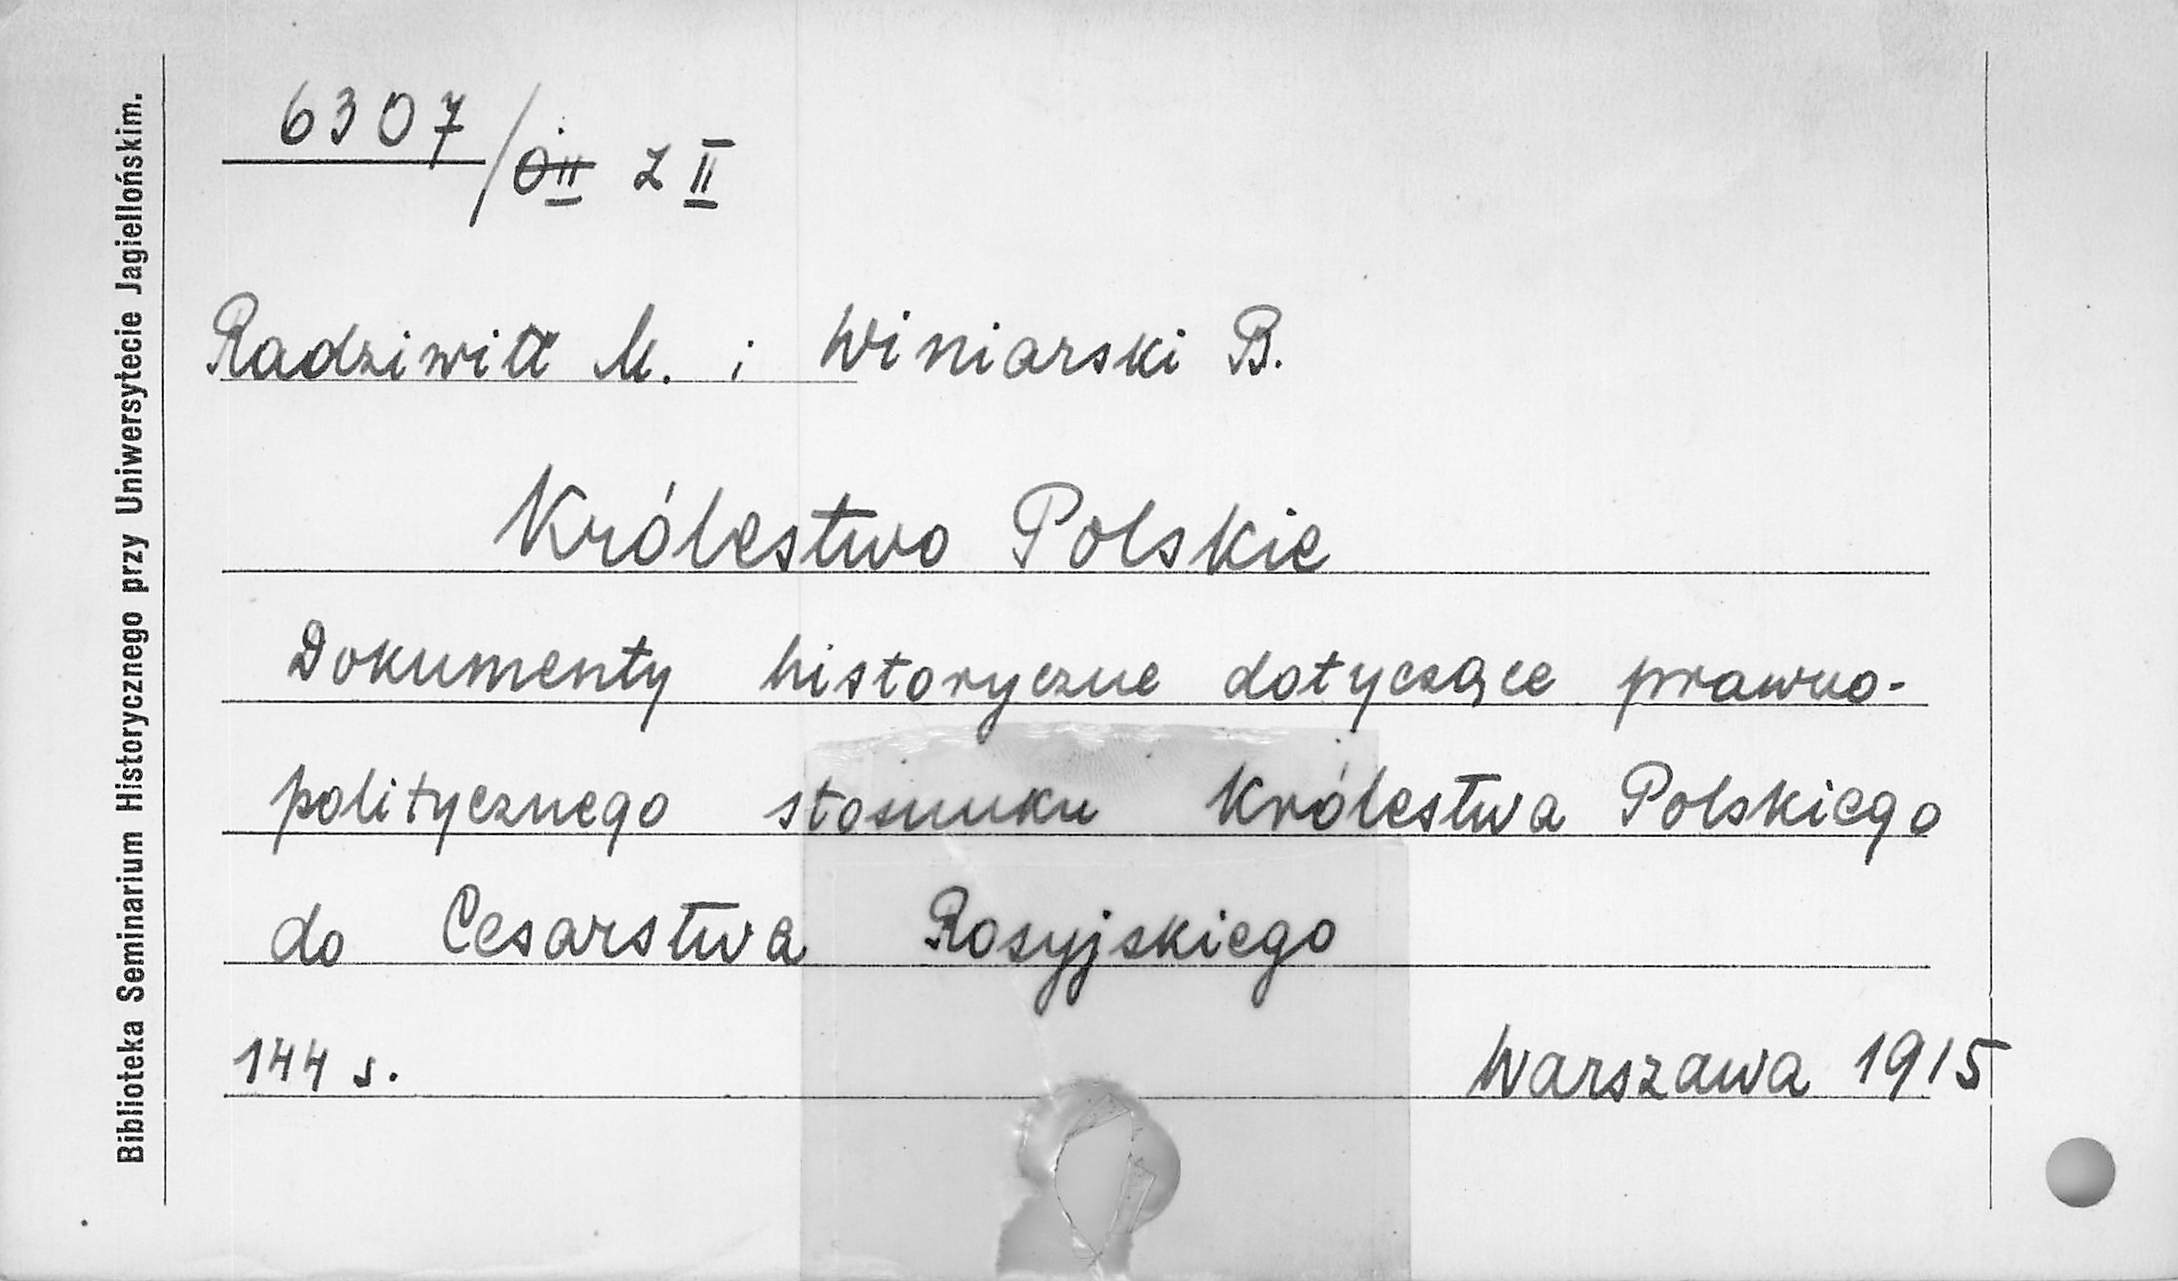 Biblioteka Seminarium Historycznego przy Uniwersytecie Jagiellońskim.
6307/ Z II
Radziwiłł M. i Winiarski B.
Królestwo Polskie
Dokumenty historyczne dotyczące prawno-
politycznego stosunku Królestwa Polskiego
do Cesarstwa Rosyjskiego
144 s. Warszawa 1915